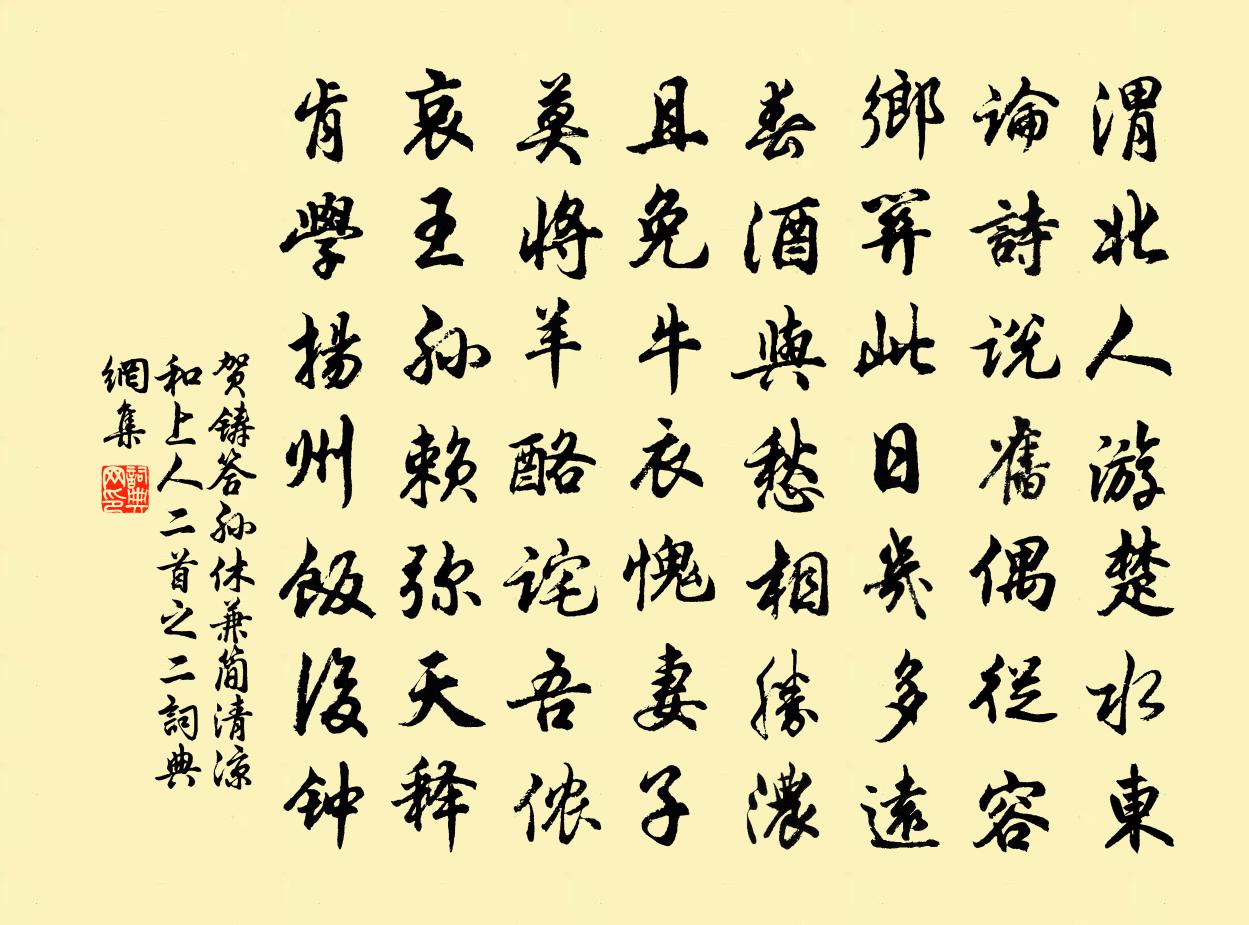 渭北人游楚水東
論詩説舊偶從容
鄉關此日幾多遠
春酒與愁相勝濃
且免牛衣愧妻子
莫將羊酪詫吾儂
哀王孫賴弥天釋
肯學揚州飯後鐘
賀鑄答孫休兼簡清涼
和上人二首之二詞典
網集
詞典网印